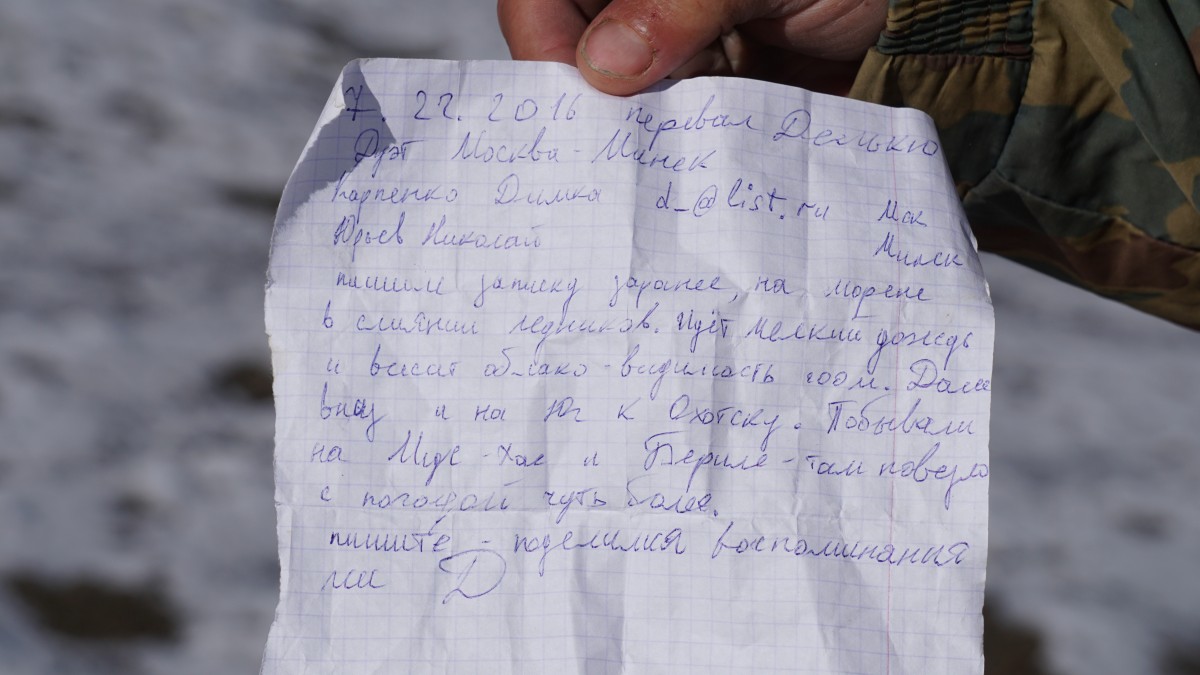 7. 22. 2016 перевал Делькю
Дуэт Москва - Минск
Карпенко Димка d_@list.ru Мск
Юрьев Николай Минск
пишем записку заранее, на морене
в слиянии ледников. Идёт мелкий дождь
и висит облако - видимость 100м. Далее
вниз и на Юг к Охотску. Побывали
на Мус-Хае и Бериле - там повезло
с погодой чуть более.
пишите - поделимся воспоминания
ми Д